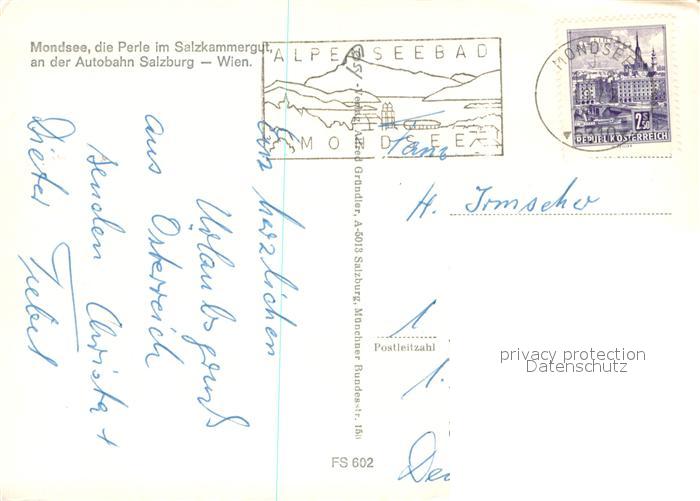 Mondsee, die Perle im Salzkammergut,
an der Autobahn Salzburg — Wien.
ALPENSEEBAD
MONDSEE
MONDSEE
2S
REPUBLIK ÖSTERREICH
Verlag Alfred Gründler, A-5013 Salzburg, Münchner Bundesstr. 150
Fam
H. Irmscher
1
Postleitzahl
1.
FS 602
herzlichen
Urlaubsgruß
aus Österreich
senden Christa +
Dieter
privacy protection
Datenschutz